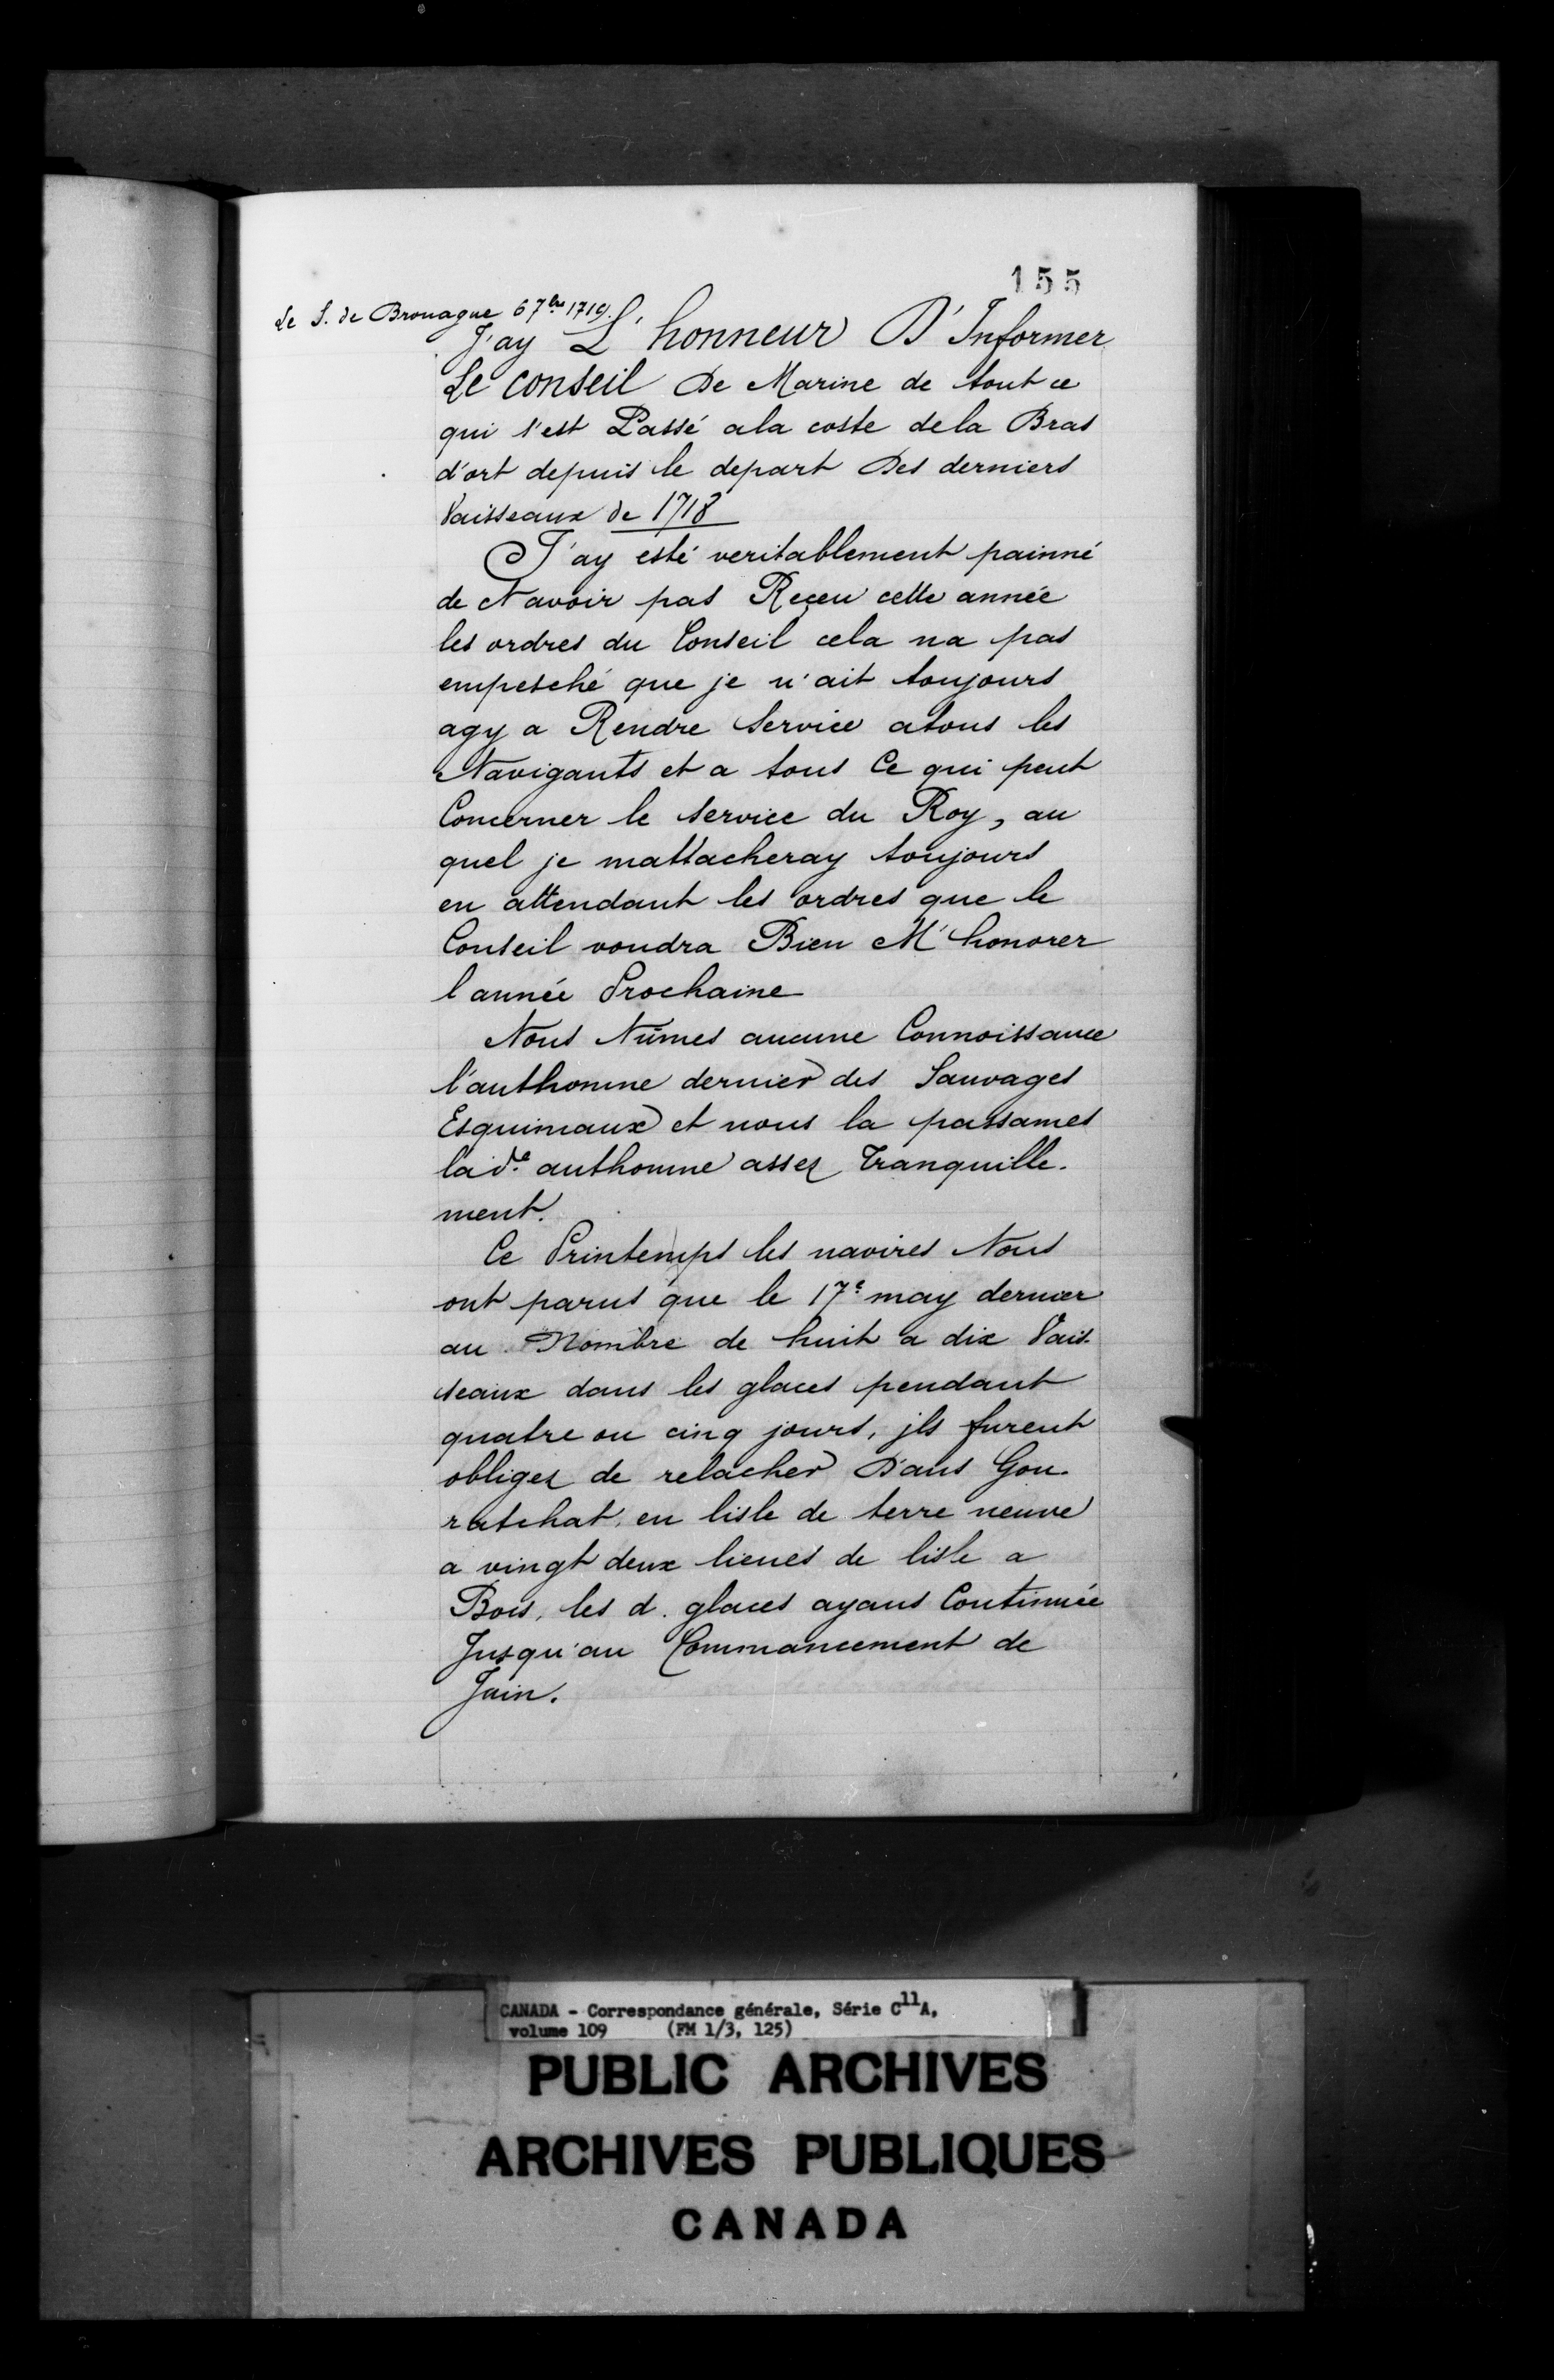 155
Le S. de Brouague 6 7bre 1719.
J'ay L'honneur D'Informer
Le conseil De Marine de tout ce
qui s'est Passé ala coste dela Bras
d'ort depuis le depart Des derniers
Vaisseaux de 1718
J'ay esté veritablement painné
de N avoir pas Reçeu cette année
les ordres du Conseil cela na pas
empesché que je n'ait toujours
agy a Rendre Service atous les
Navigants et a tous Ce qui peut
Concerner le service du Roy, au
quel je mattacheray toujours
en attendant les ordres que le
Conseil voudra Bien M'honorer
l année Prochaine
Nous Nûmes aucune Connoissance
l'authonne dernier des Sauvages
Esquimaux et nous la passames
la de. authomne assez Tranquille-
ment.
Ce Printemps les navires Nous
ont parus que le 17e may dernier
au Nombre de huit a dix Vais-
seaux dans les glaces pendant
quatre ou cinq jours, jls furent
obligez de relacher D'ans Gou-
ratchat, en lisle de terre neuve
a vingt deux lieues de lisle a
Bois, les d. glaces ayans Continuée
Jusqu'au Commancement de
Juin.
CANADA - Correspondance générale, Série C11A,
volume 109 (FM 1/3, 125)
PUBLIC ARCHIVES
ARCHIVES PUBLIQUES
CANADA